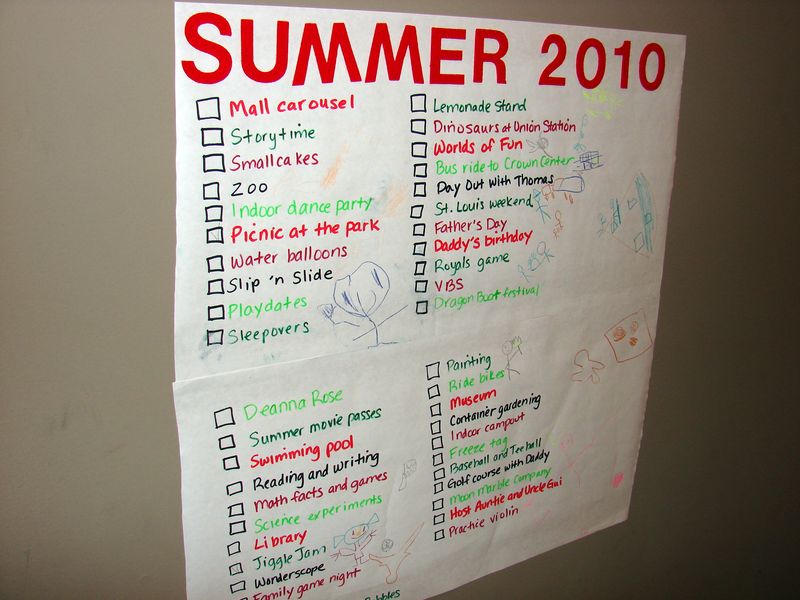 SUMMER 2010
Mall carousel
Storytime
Smallcakes
Zoo
Indoor dance party
Picnic at the park
Water balloons
Slip 'n Slide
Playdates
Sleepovers
Lemonade Stand
Dinosaurs at Union Station
Worlds of Fun
Bus ride to Crown Center
Day Out with Thomas
St. Louis weekend
Father's Day
Daddy's birthday
Royals game
VBS
Dragon Boat festival
Deanna Rose
Summer movie passes
Swimming pool
Reading and writing
Math facts and games
Science experiments
Library
Jiggle Jam
Wonderscope
Family game night
Painting
Ride bikes
Museum
Container gardening
Indoor campout
Freeze tag
Baseball and Tee ball
Golf course with Daddy
Moon Marble Company
Host Auntie and Uncle Gui
Practice violin